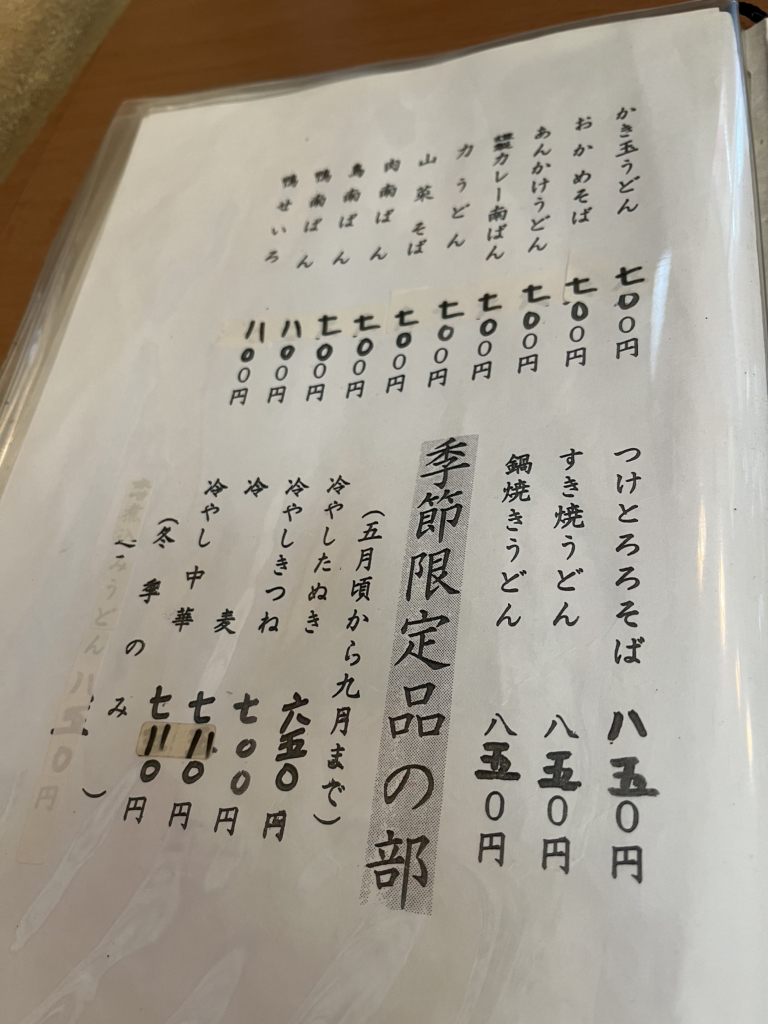 かき玉うどん 七〇〇円
おかめそば 七〇〇円
あんかけうどん 七〇〇円
カレー南ばん 七〇〇円
力うどん 七〇〇円
山菜そば 七〇〇円
肉南ばん 七〇〇円
鳥南ばん 七〇〇円
鴨南ばん 八〇〇円
鴨せいろ 八〇〇円
つけとろろそば 八五〇円
すき焼うどん 八五〇円
鍋焼きうどん 八五〇円
季節限定品の部
(五月頃から九月まで)
冷やしたぬき 六五〇円
冷やしきつね 七〇〇円
冷麦
冷やし中華
(冬季のみ)
込みうどん 八五〇円